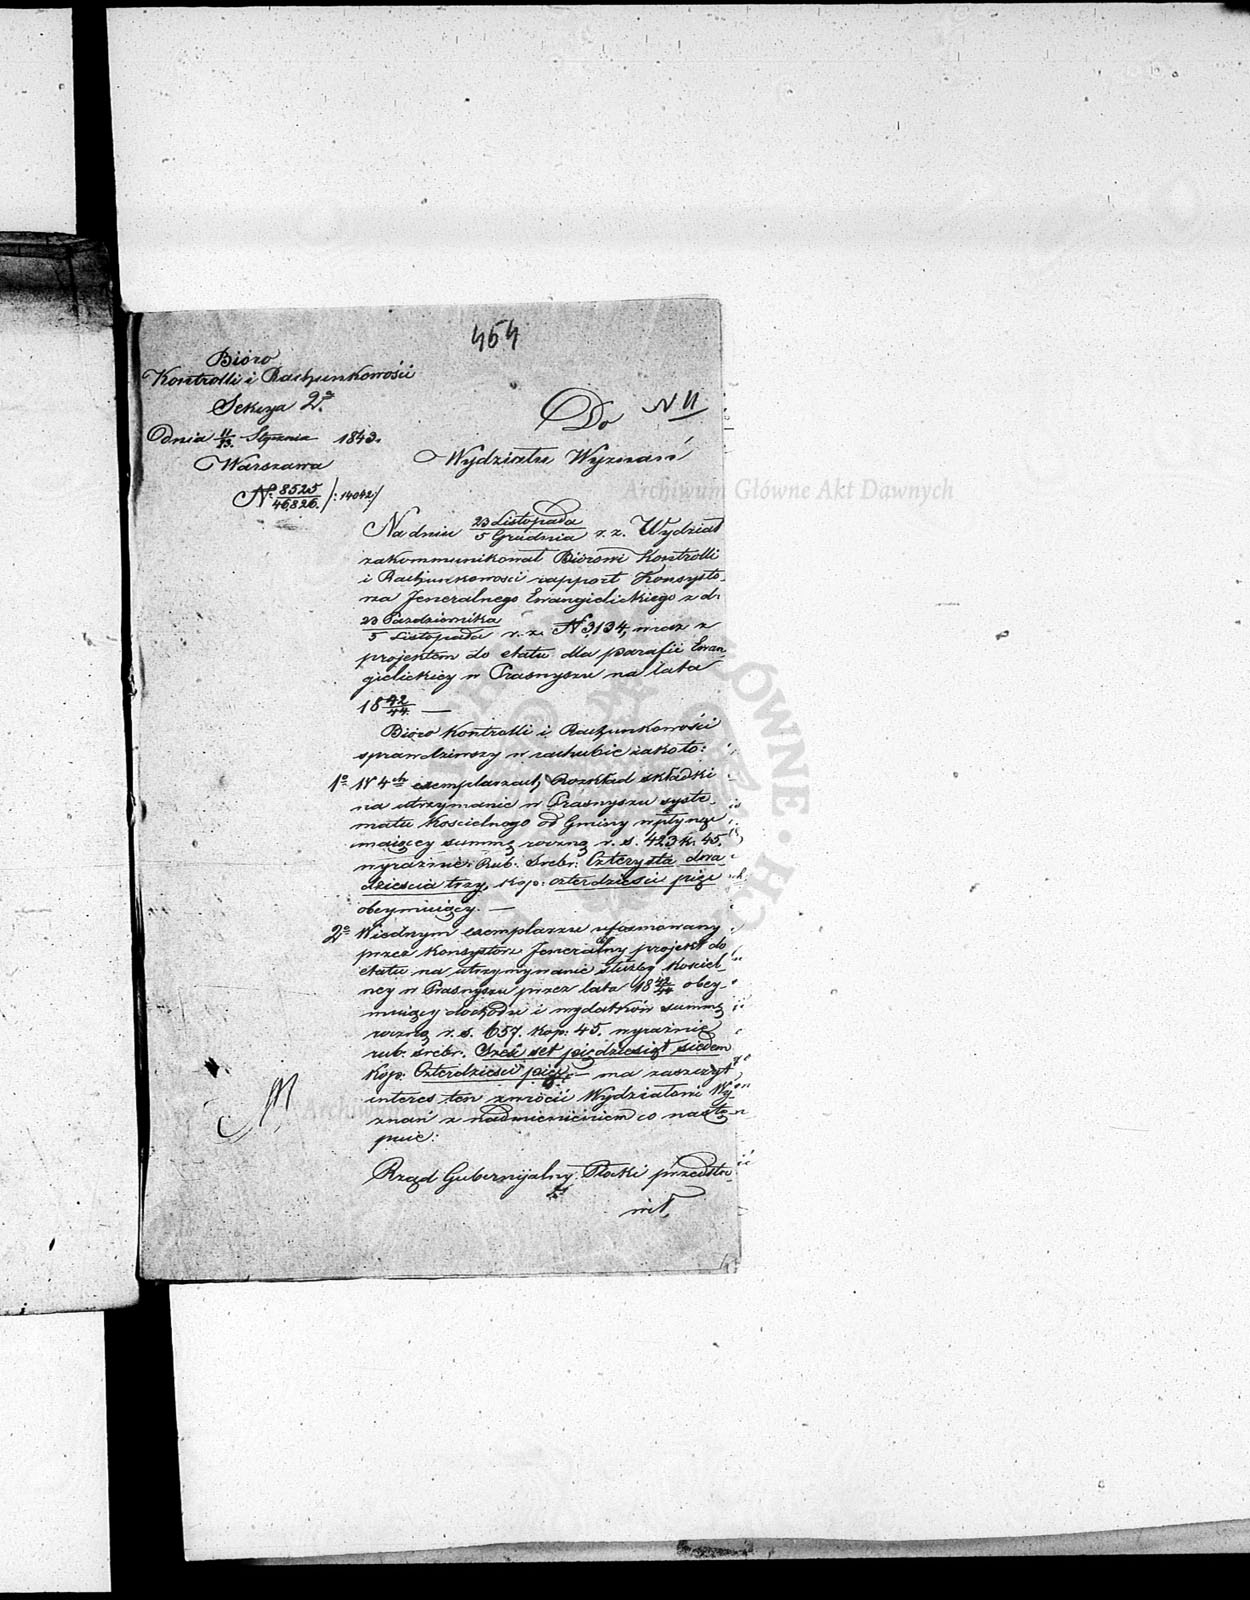 454
Bióro
Kontrolli i Rachunkowości
Sekcya 2ª
Dnia 11/23. Stycznia 1843.
Warszawa
Nº 8525/46826. /:14042/
Do N 11
Wydziału Wyznań
Na dniu 23 Listopada/5 Grudnia r. z. Wydział
zakommunikował Biórowi Kontrolli
i Rachunkowości rapport Konsysto-
rza Jeneralnego Ewangielickiego z d.
23 Października/5 Listopada r. z. N 3134, wraz z
projektem do etatu dla parafii Ewan-
gielickiey w Prasnyszu na lata
18 42/44 —
Bióro Kontrolli i Rachunkowości
sprawdziwszy w rachubie jakoto:
1º W 4ch exemplarzach Rozkład składki
na utrzymanie w Prasnyszu syste-
matu Kościelnego od Gminy wpłynąć
maiącey summę roczną r. s. 423 k. 45.
wyraźnie: Rub. Srebr: Czterysta dwa
dzieścia trzy, kop: czterdzieści pięć
obeymuiący. —
2º W iednym exemplarzu uformowany
przez Konsystorz Jeneralny projekt do
etatu na utrzymywanie służby Kościel-
ney w Prasnyszu przez lata 18 42/44 obey-
muiący dochodu i wydatków summę
roczną r. s. 657. kop: 45. wyraźnie
rub. srebr. Sześć set pięćdziesiąt siedem
kop. Czterdzieści pięć — ma zaszczyt
interes ten zwrócić Wydziałowi Wy-
znań z nadmienieniem co nastę-
puie:
Rząd Gubernijalny Płocki przedsta-
wił,
Archiwum Główne Akt Dawnych